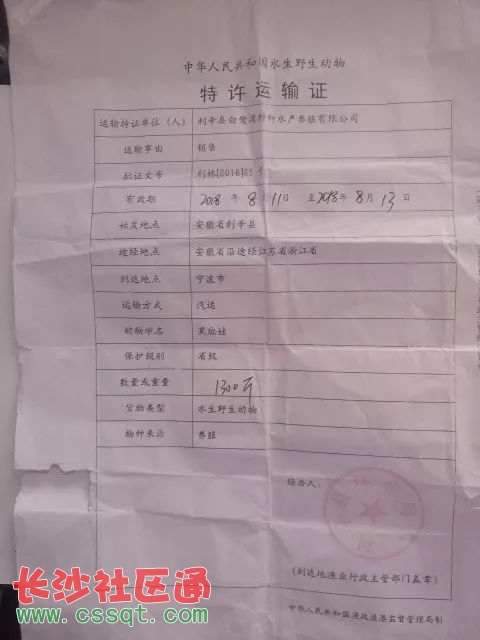 中华人民共和国水生野生动物
特许运输证
运输特证单位(人) 利辛县白鹭湾特种水产养殖有限公司
运输事由 销售
批证文号 利林[2016]65号
有效期 2018 年 8 月 11 日 至 2018 年 8 月 13 日
始发地点 安徽省利辛县
途经地点 安徽省沿途经江苏省浙江省
到达地点 宁波市
运输方式 汽运
动物学名 黑斑蛙
保护级别 省级
数量或重量 1300斤
货物类型 水生野生动物
物种来源 养殖
经办人:
(到达地渔业行政主管部门盖章)
中华人民共和国渔政渔港监督管理局制
长沙社区通
www.cssqt.com